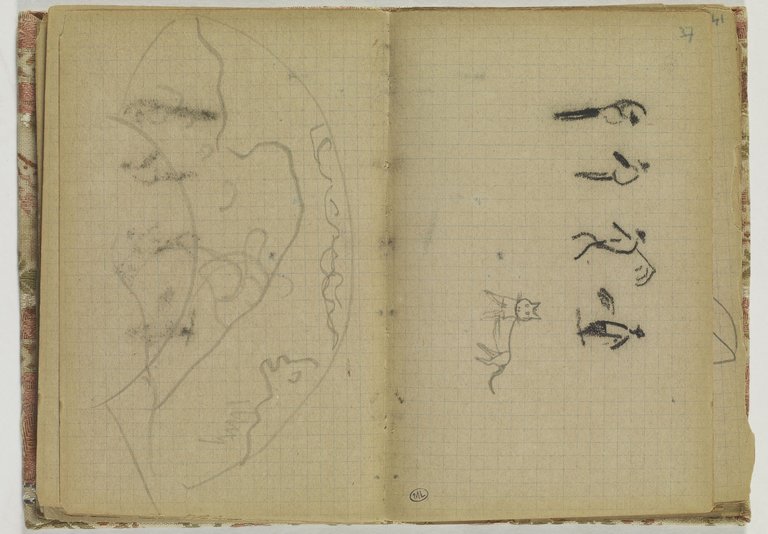 37
41
ML